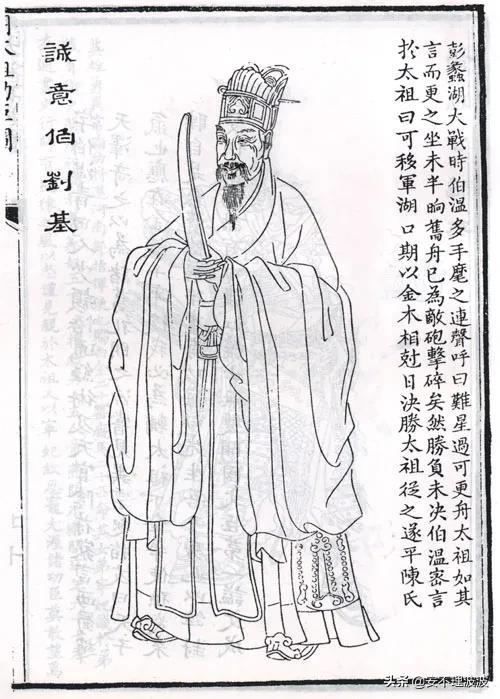 彭蠡湖大戰時伯溫多手麾之連聲呼曰難星過可更舟太祖如其
言而更之坐未半晌舊舟已為敵砲擊碎矣然勝負未决伯溫密言
扵太祖曰可移軍湖口期以金木相尅日决勝太祖從之遂平陳氏
誠意伯劉基
头条 @安不理波波